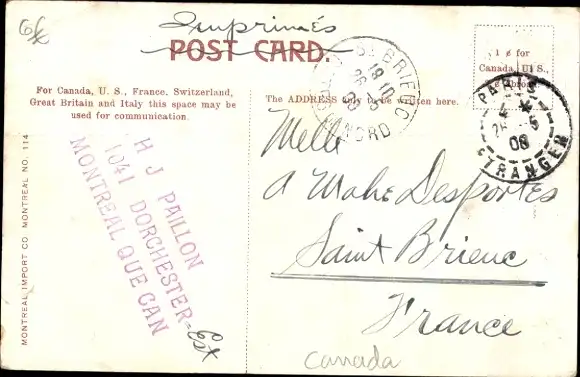 Imprimés
POST CARD.
For Canada, U. S., France, Switzerland,
Great Britain and Italy this space may be
used for communication.
The ADDRESS only to be written here.
1 ¢ for
Canada, U. S.,
MONTREAL IMPORT CO MONTREAL NO. 114
H J PAILLON
1041 DORCHESTER-Est
MONTREAL QUE CAN
ST BRIEUC
NORD
PARIS
08
ETRANGER
Melle
A Mahe Desportes
Saint Brieuc
France
Canada